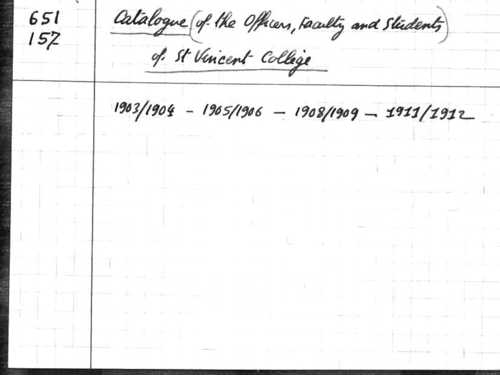 651
157
Catalogue (of the Officers, Faculty and Students)
of St Vincent College
1903/1904 – 1905/1906 – 1908/1909 – 1911/1912